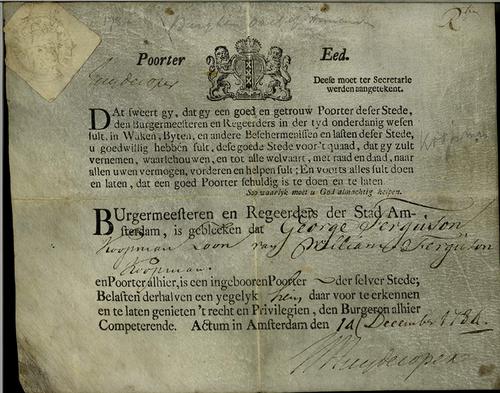 Poorter Eed.
Deese moet ter Secretarie
werden aangetekent.
DAt sweert gy, dat gy een goed en getrouw Poorter deser Stede,
den Burgermeesteren en Regeerders in der tyd onderdanig wesen
sult, in Waken, Byten, en andere Beschermenissen en lasten deser Stede,
u goedwillig hebben sult, dese goede Stede voor't quaad, dat gy zult
vernemen, waarschouwen, en tot alle welvaart, met raad en daad, naar
allen uwen vermogen, vorderen en helpen sult; En voorts alles sult doen
en laten, dat een goed Poorter schuldig is te doen en te laten
Soo waarlyk moet u God almachtig helpen.
BUrgermeesteren en Regeerders der Stad Am-
sterdam, is gebleeken dat George Ferguson
Koopman Zoon van William Ferguson
Koopman.
en Poorter alhier, is een ingebooren Poorter der selver Stede;
Belasten derhalven een yegelyk hem daar voor te erkennen
en te laten genieten 't recht en Privilegien, den Burgeren alhier
Competerende. Actum in Amsterdam den December 1784.